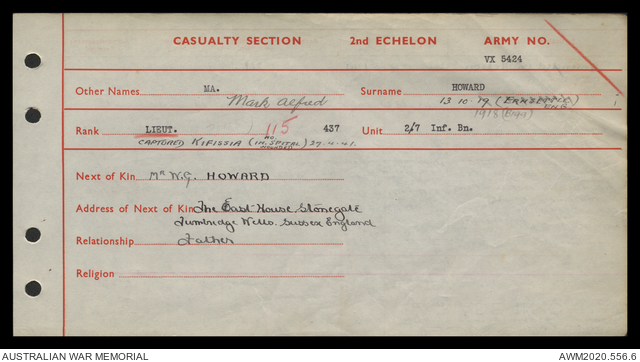 CASUALTY SECTION 2nd ECHELON ARMY NO.
VX 5424
Other Names MA. Surname HOWARD
Mark Alfred 13 10 19
1918
Rank LIEUT. 115 437 Unit 2/7 Inf. Bn.
CAPTURED KIFISSIA (IN HOSPITAL WOUNDED) 27-4-41.
Next of Kin Mr W.G. HOWARD
Address of Next of Kin The East House, Stonegate
Tumbridge Wells. Sussex England
Relationship Father
Religion
AUSTRALIAN WAR MEMORIAL AWM2020.556.6